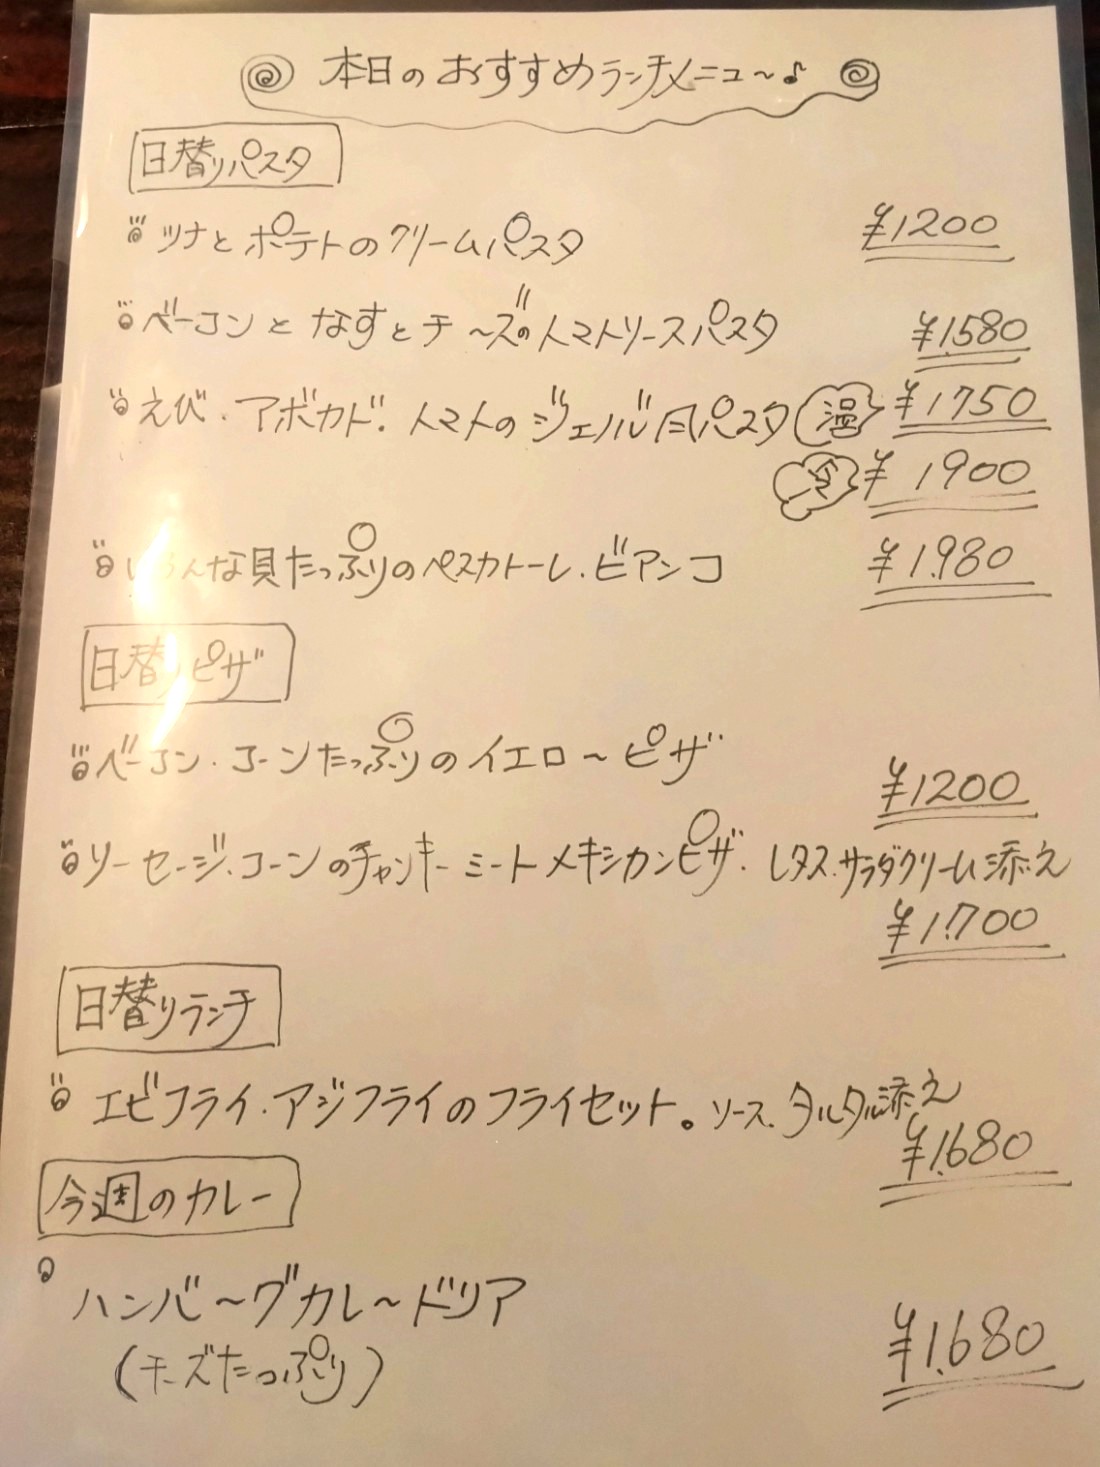 本日のおすすめランチメニュー～♪
日替りパスタ
ツナとポテトのクリームパスタ ¥1200
ベーコンとなすとチ～ズのトマトソースパスタ ¥1,580
えび・アボカド・トマトのジェノバ風パスタ 温 ¥1750
冷 ¥1900
いろんな貝たっぷりのペスカトーレ・ビアンコ ¥1,980
日替りピザ
ベーコン・コーンたっぷりのイエロ～ピザ
¥1200
ソーセージ・コーンのチャンキーミートメキシカンピザ・レタス・サラダクリーム添え
¥1,700
日替りランチ
エビフライ・アジフライのフライセット。ソース、タルタル添え
¥1,680
今週のカレー
ハンバ～グカレ～ドリア
(チーズたっぷり) ¥1,680